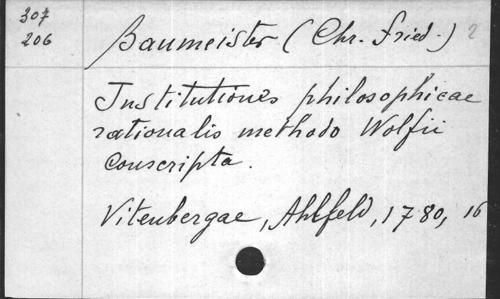 307
206
Baumeister (Chr. Fried.) 2
Institutiones philosophicae
rationalis methodo Wolfii
conscripta.
Vitenbergae, Ahlfeld, 1780, 16